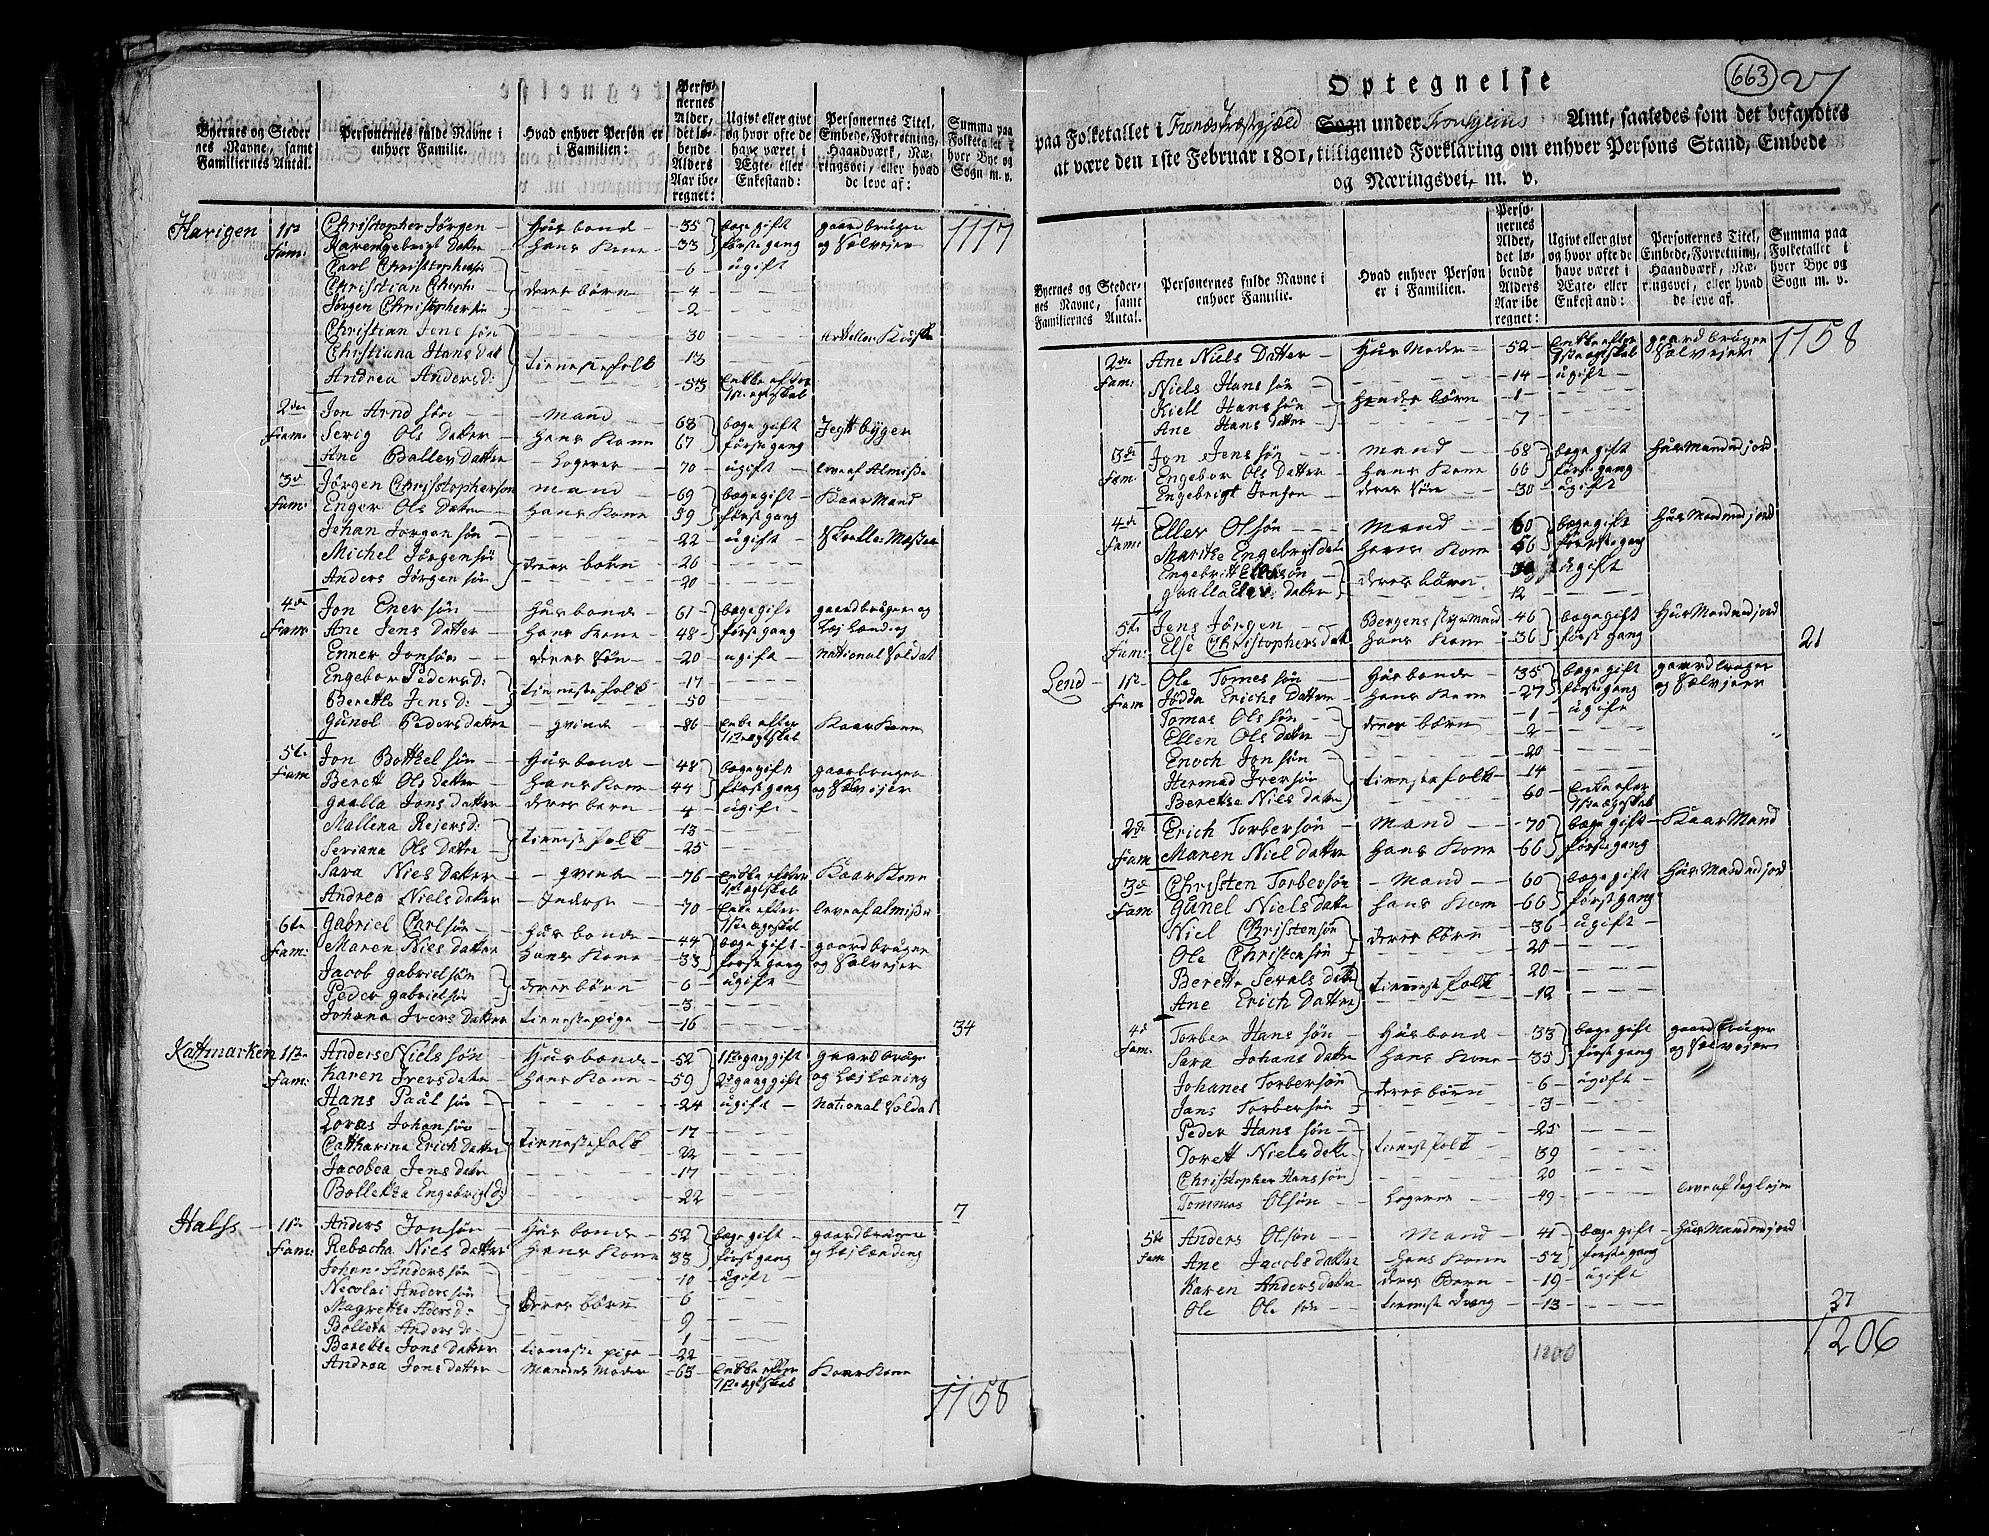 Byernes og Steder nes Navne, samt Familiernes Antal.
Personernes fulde Navne i enhver Familie.
Hvad enhver Person er i Familien:
Personernes Alder, det løbende Alders Aar iberegnet:
Ugivt eller givt og hvor ofte de have været i Ægte- eller Enkestand:
Personernes Titel, Embede, Forretning, Haandværk, Næringsvei, eller hvad de leve af:
Summa paa Folketallet i hver Bye og Sogn m. v.
Harigen 1ste Christopher Jørgen Husbonde 35 bæge gift gaardbruger 1117
Fam: Karen Engebrigt Datter Hans Kone 33 første gang og Sælvejer
Carl Christophersøn 6 ugift
Christian Christoph: deres børn 4
Jørgen Christophersøn 2
Christian Jens søn 30
Christiana Hans Dat tienestefolk 13
Andrea Andersd: 53 Enkke efter 1ste egteskab
2den Jon Arnd søn mand 68 bæge gift Jegtbyger
Fam: Serig Ols Datter Hans Kone 67 første gang
Ane Ballev Datter Logerer 70 ugift leve af Almisse
3de Jørgen Christopherson mand 69 bæge gift Kaar Mand
Fam: Enger Ols Datter Hans Kone 59 første gang
Johan Jørgen søn 22 ugift
Michel Jørgensøn deres børn 26
Anders Jørgen søn 20
4de Jon Ener søn Husbonde 61 bæge gift gaardbruger og
Fam: Ane Jens Datter Hans Kone 48 første gang Lejlænding
Enner Jonsøn deres søn 20 ugift national Soldat
Engebor Pedersd: tienestefolk 17
Berette Jensd: 50
Gunel Peders datter qvinde 86 Enke efter 1ste egteskab Kaar Kone
5te Jon Botthel søn Husbonde 48 bæge gift gaardbruger
Fam Berett Ols datter Hans Kone 44 første gang og Sælvejer
Gaalla Jons datter deres børn 4 ugift
Mallena Rejersd: tienestefolk 13
Seriana Ols Datter 25
Sara Niels Datter qvinde 76 Enkke efter 1ste egteskab Kaar Kone
Andrea Niels datter Inderste 70 Enke efter 1ste egteskab leve af Almisse
6te Gabriel Carl søn Husbonde 44 bæge gift gaardbruger
Fam: Maren Niels datter Hans Kone 33 første gang og Sælvejer
Jacob Gabrielsøn deres børn 6 ugift
Peder Gabrielsøn 3
Johana Ivers Datter tienestepige 16 34
Kattmarken 1ste Anders Niels søn Husbonde 52 1ste gang gift gaardbruge
Fam: Karen Ivers datter Hans Kone 59 2de gang gift og Lejlæning
Hans Paul søn 24 ugift National Soldat
Loras Johansøn 17
Catharina Erich datter tienestefolk 22
Jacobea Jens datter 17
Bolletta Engebrigtd: 22 7
Halss 1ste Anders Jonsøn Husbonde 52 bæge gift gaardbruger
Fam: Rebacha Niels datter Hans Kone 33 første gang og Lejlænding
Johan Anderssøn 10 ugift
Necolai Anders søn deres børn 6
Magrette Andersd: 9
Bolleta Anders d: 1
Berette Jons datter tieneste pige 22
Andrea Jons datter Mandens Moder 65 Enkke efter 1ste egteskab Kaar Kone
1158
663 27
Optegnelse
paa Folketallet i Fosnes Præstegjæld Sogn under Tronhjems Amt, saaledes som det befandtes
at være den 1ste Februar 1801, tilligemed Forklaring om enhver Persons Stand, Embede
og Næringsvei, m. v.
Byernes og Stedernes Navne, samt Familiernes Antal.
Personernes fulde Navne i enhver Familie.
Hvad enhver Person er i Familien.
Personernes Alder, det løbende Alders Aar iberegnet:
Ugivt eller givt og hvor ofte de have været i Ægte- eller Enkestand:
Personernes Titel, Embede, Forretning, Haandværk, Næringsvei, eller hvad de leve af.
Summa paa Folketallet i hver Bye og Sogn m. v.
2den Ane Niels Datter Hus Moder 52 Enkke efter 1ste egteskab gaardbruger Sælvejer 1158
Fam: Niels Hans søn 14 ugift
Kiell Hans søn Hendes børn 1
Ane Hans datter 7
3de Jon Jens søn mand 68 bæge gift Hus Mand md jord
Fam: Engebor Ols Datter Hans Kone 66 første gang
Engebrigt Jonsen deres søn 30 ugift
4de Eller Olsøn Mand 60 bæge gift Hus Mand md jord
Fam: Maritte Engebrigts datter Hans Kone 56 første gang
Engebritt Ellersøn deres børn ugift
Gaalla datter 12
5te Jens Jørgen 46 bæge gift Hus Mand md jord
Fam: Else Christophers datt Hans Kone 36 første gang 21
Lend 1ste Ole Tomes søn Husbonde 35 bæge gift gaardbruger
Fam Jødda Erichs Datter Hans Kone 27 første gang og Sælvejer
Tomas Ols søn deres børn 1 ugift
Ellen Ols datter 2
Enoch Jon søn 20
Hermad Iversøn tienestefolk 14
Berette Niels datter 60 Enke efter 1ste egteskab
2de Erich Torbersøn Mand 70 bæge gift Kaar Mand
Fam Maren Niel datter Hans Kone 66 første gang
3de Christen Torbersøn Mand 60 bæge gift Hus Mand md jord
Fam Gunel Niels datter Hans Kone 66 første gang
Niel Christensøn deres børn 36 ugift
Ole Christensøn 20
Berette Sevals datter tienestefolk 20
Ane Erich Datter 12
4de Torber Hans søn Husbonde 33 bæge gift gaardbruger
Fam: Sara Johans datter Hans Kone 35 første gang og Sælvejer
Johanes Torbersøn deres børn 6 ugift
Jans Torbersøn 3
Peder Hans søn 25
Dorett Niels datter tienestefolk 39
Christopher Hanssøn 20
Tommas Olsøn Logerer 49 leve af daglejen
5te Anders Olsøn Mand 41 bæge gift Hus Mand md jord
Fam Ane Jacobs datter Hans Kone 52 første gang
Karen Anders datter deres Børn 19 ugift
Ole Ole søn tieneste dræng 13 27
1200 1206